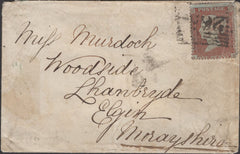 Miss Murdoch
Woodside
Lhanbryde
Elgin
Morayshire